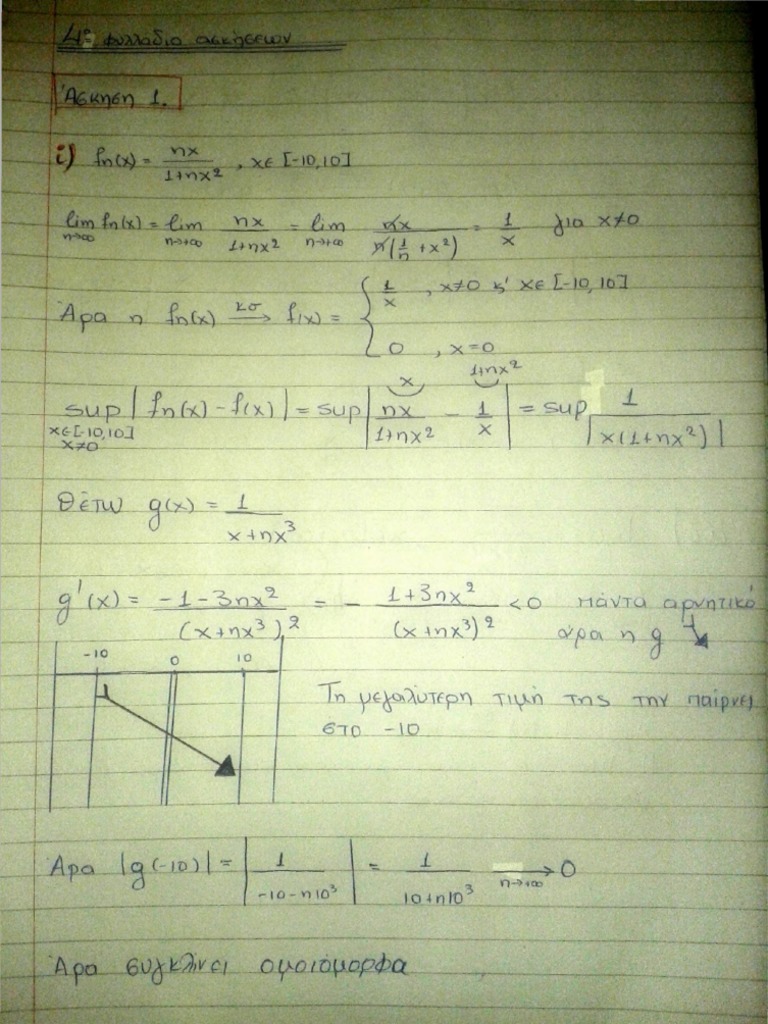 4ο φυλλάδιο ασκήσεων
Άσκηση 1.
i) fn(x) = nx / 1+nx² , x∈ [-10,10]
lim n→∞ fn(x) = lim n→+∞ nx / 1+nx² = lim n→+∞ nx / n(1/n + x²) = 1/x για x≠0
Άρα η fn(x) κσ→ f(x) = { 1/x , x≠0 κ' x∈ [-10,10]
0 , x=0
sup x∈[-10,10] x≠0 | fn(x) - f(x) | = sup | nx / 1+nx² (x) - 1/x (1+nx²) | = sup 1 / |x(1+nx²)|
Θέτω g(x) = 1 / x+nx³
g'(x) = -1-3nx² / (x+nx³)² = - 1+3nx² / (x+nx³)² <0 πάντα αρνητικό
άρα η g ↘
-10 0 10
Τη μεγαλύτερη τιμή της την παίρνει
στο -10
Άρα |g(-10)| = | 1 / -10-n10³ | = 1 / 10+n10³ n→+∞ → 0
Άρα συγκλίνει ομοιόμορφα